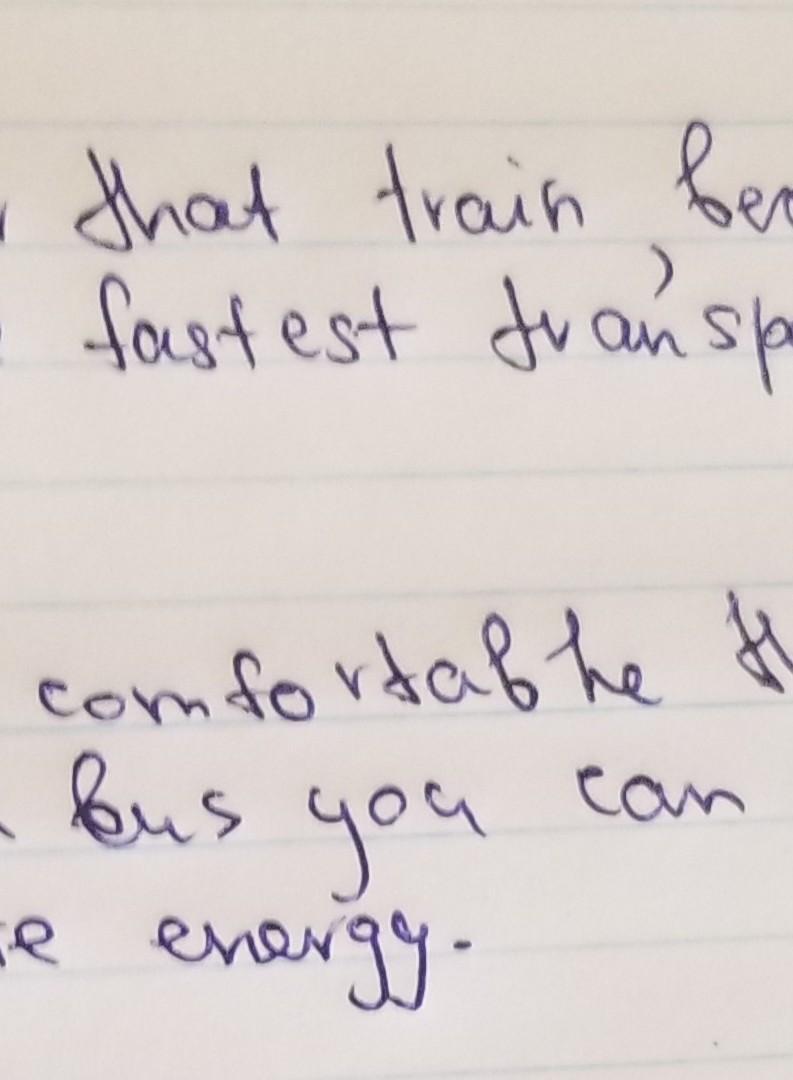 that train, bec
fastest transpo
comfortabhe th
bus you can
energy.